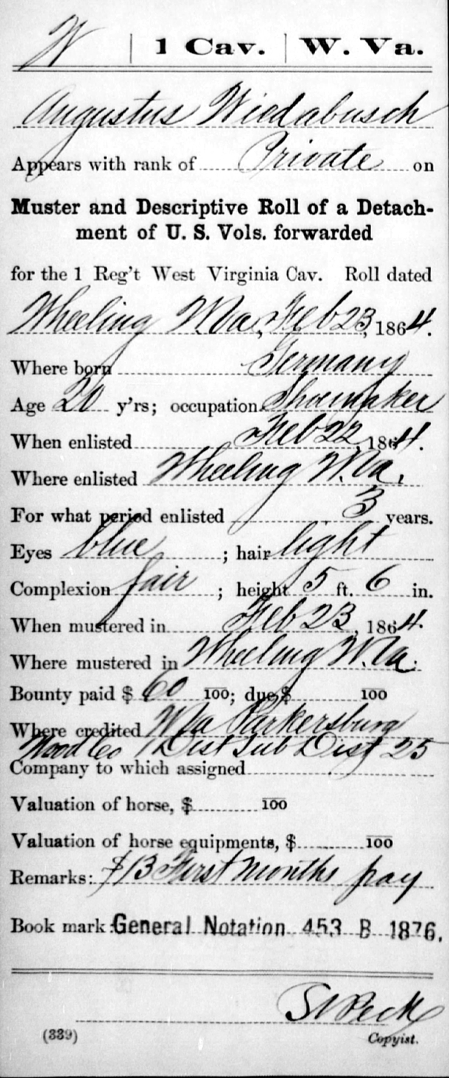 W | 1 Cav. | W. Va.
Augustus Wiedabusch
Appears with rank of Private on
Muster and Descriptive Roll of a Detach-
ment of U. S. Vols. forwarded
for the 1 Reg't West Virginia Cav. Roll dated
Wheeling W Va, Feb 23, 1864.
Where born Germany
Age 20 y'rs; occupation Shoemaker
When enlisted Feb 22, 1864.
Where enlisted Wheeling W. Va.
For what period enlisted 3 years.
Eyes blue ; hair light
Complexion fair ; height 5 ft. 6 in.
When mustered in Feb 23, 1864.
Where mustered in Wheeling W. Va.
Bounty paid $ 60 100; due $ 100
Where credited W Va Parkersburg
Wood Co 1 Dist Sub Dist 25
Company to which assigned
Valuation of horse, $ 100
Valuation of horse equipments, $ 100
Remarks: $13 First months pay
Book mark: General Notation 453 B 1876.
Peck
(339) Copyist.